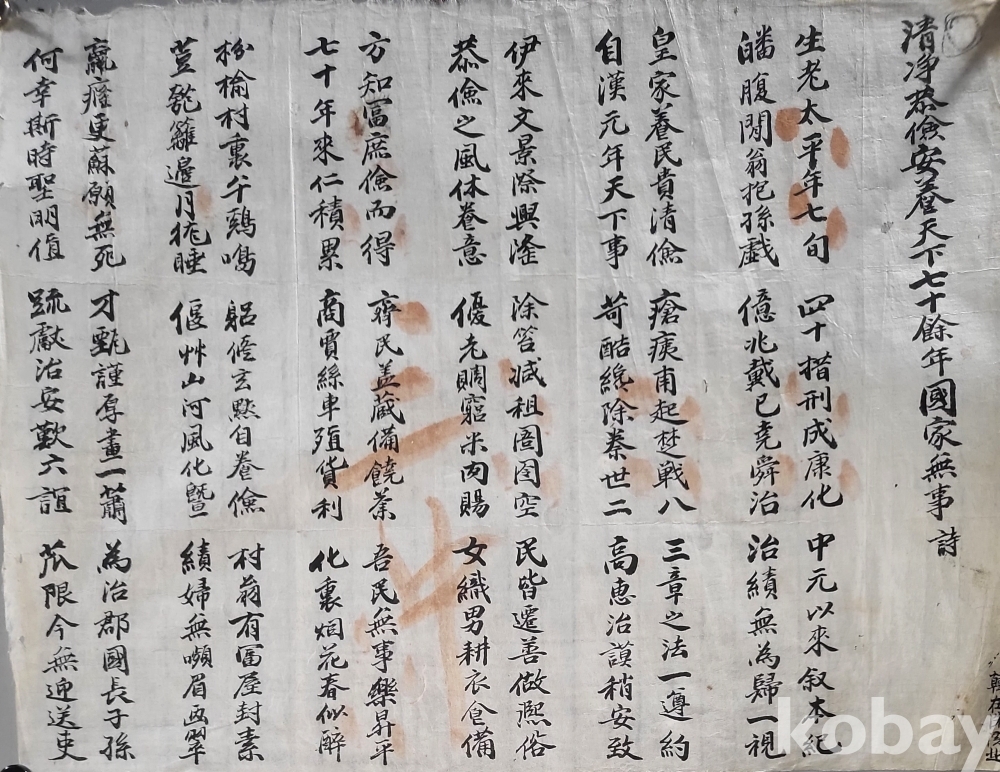 清净恭儉安養天下七十餘年國家無事 詩
生老太平年七旬 四十措刑成康化 中元以來叙本紀
皤腹閒翁抱孫戱 億兆戴已堯舜治 治績無為歸一視
皇家養民貴清儉 瘡痍甫起楚戰八 三章之法一遵約
自漢元年天下事 苛酷纔除秦世二 高惠治謨稍安致
伊來文景際興隆 除笞减租囹圄空 民皆遷善做凞俗
恭儉之風休養意 優老賙窮米肉賜 女織男耕衣食備
方知冨庶儉而得 齊民盖蔵備饒 吾民無事樂昇平
七十年來仁積累 商賈絲車殖貨利 化裏烟花春似醉
枌榆村裏午鷄鳴 躬修玄黙自養儉 村翁有冨屋封素
荳籬邊月狵睡 偃艸山河風化曁 績婦無嚬眉画翠
羸癃更蘓願無死 才甄謹厚畫一蕭 為治郡國長子孫
何幸斯時聖明值 疏獻治安歎六誼 苽限今無迎送吏
kobay